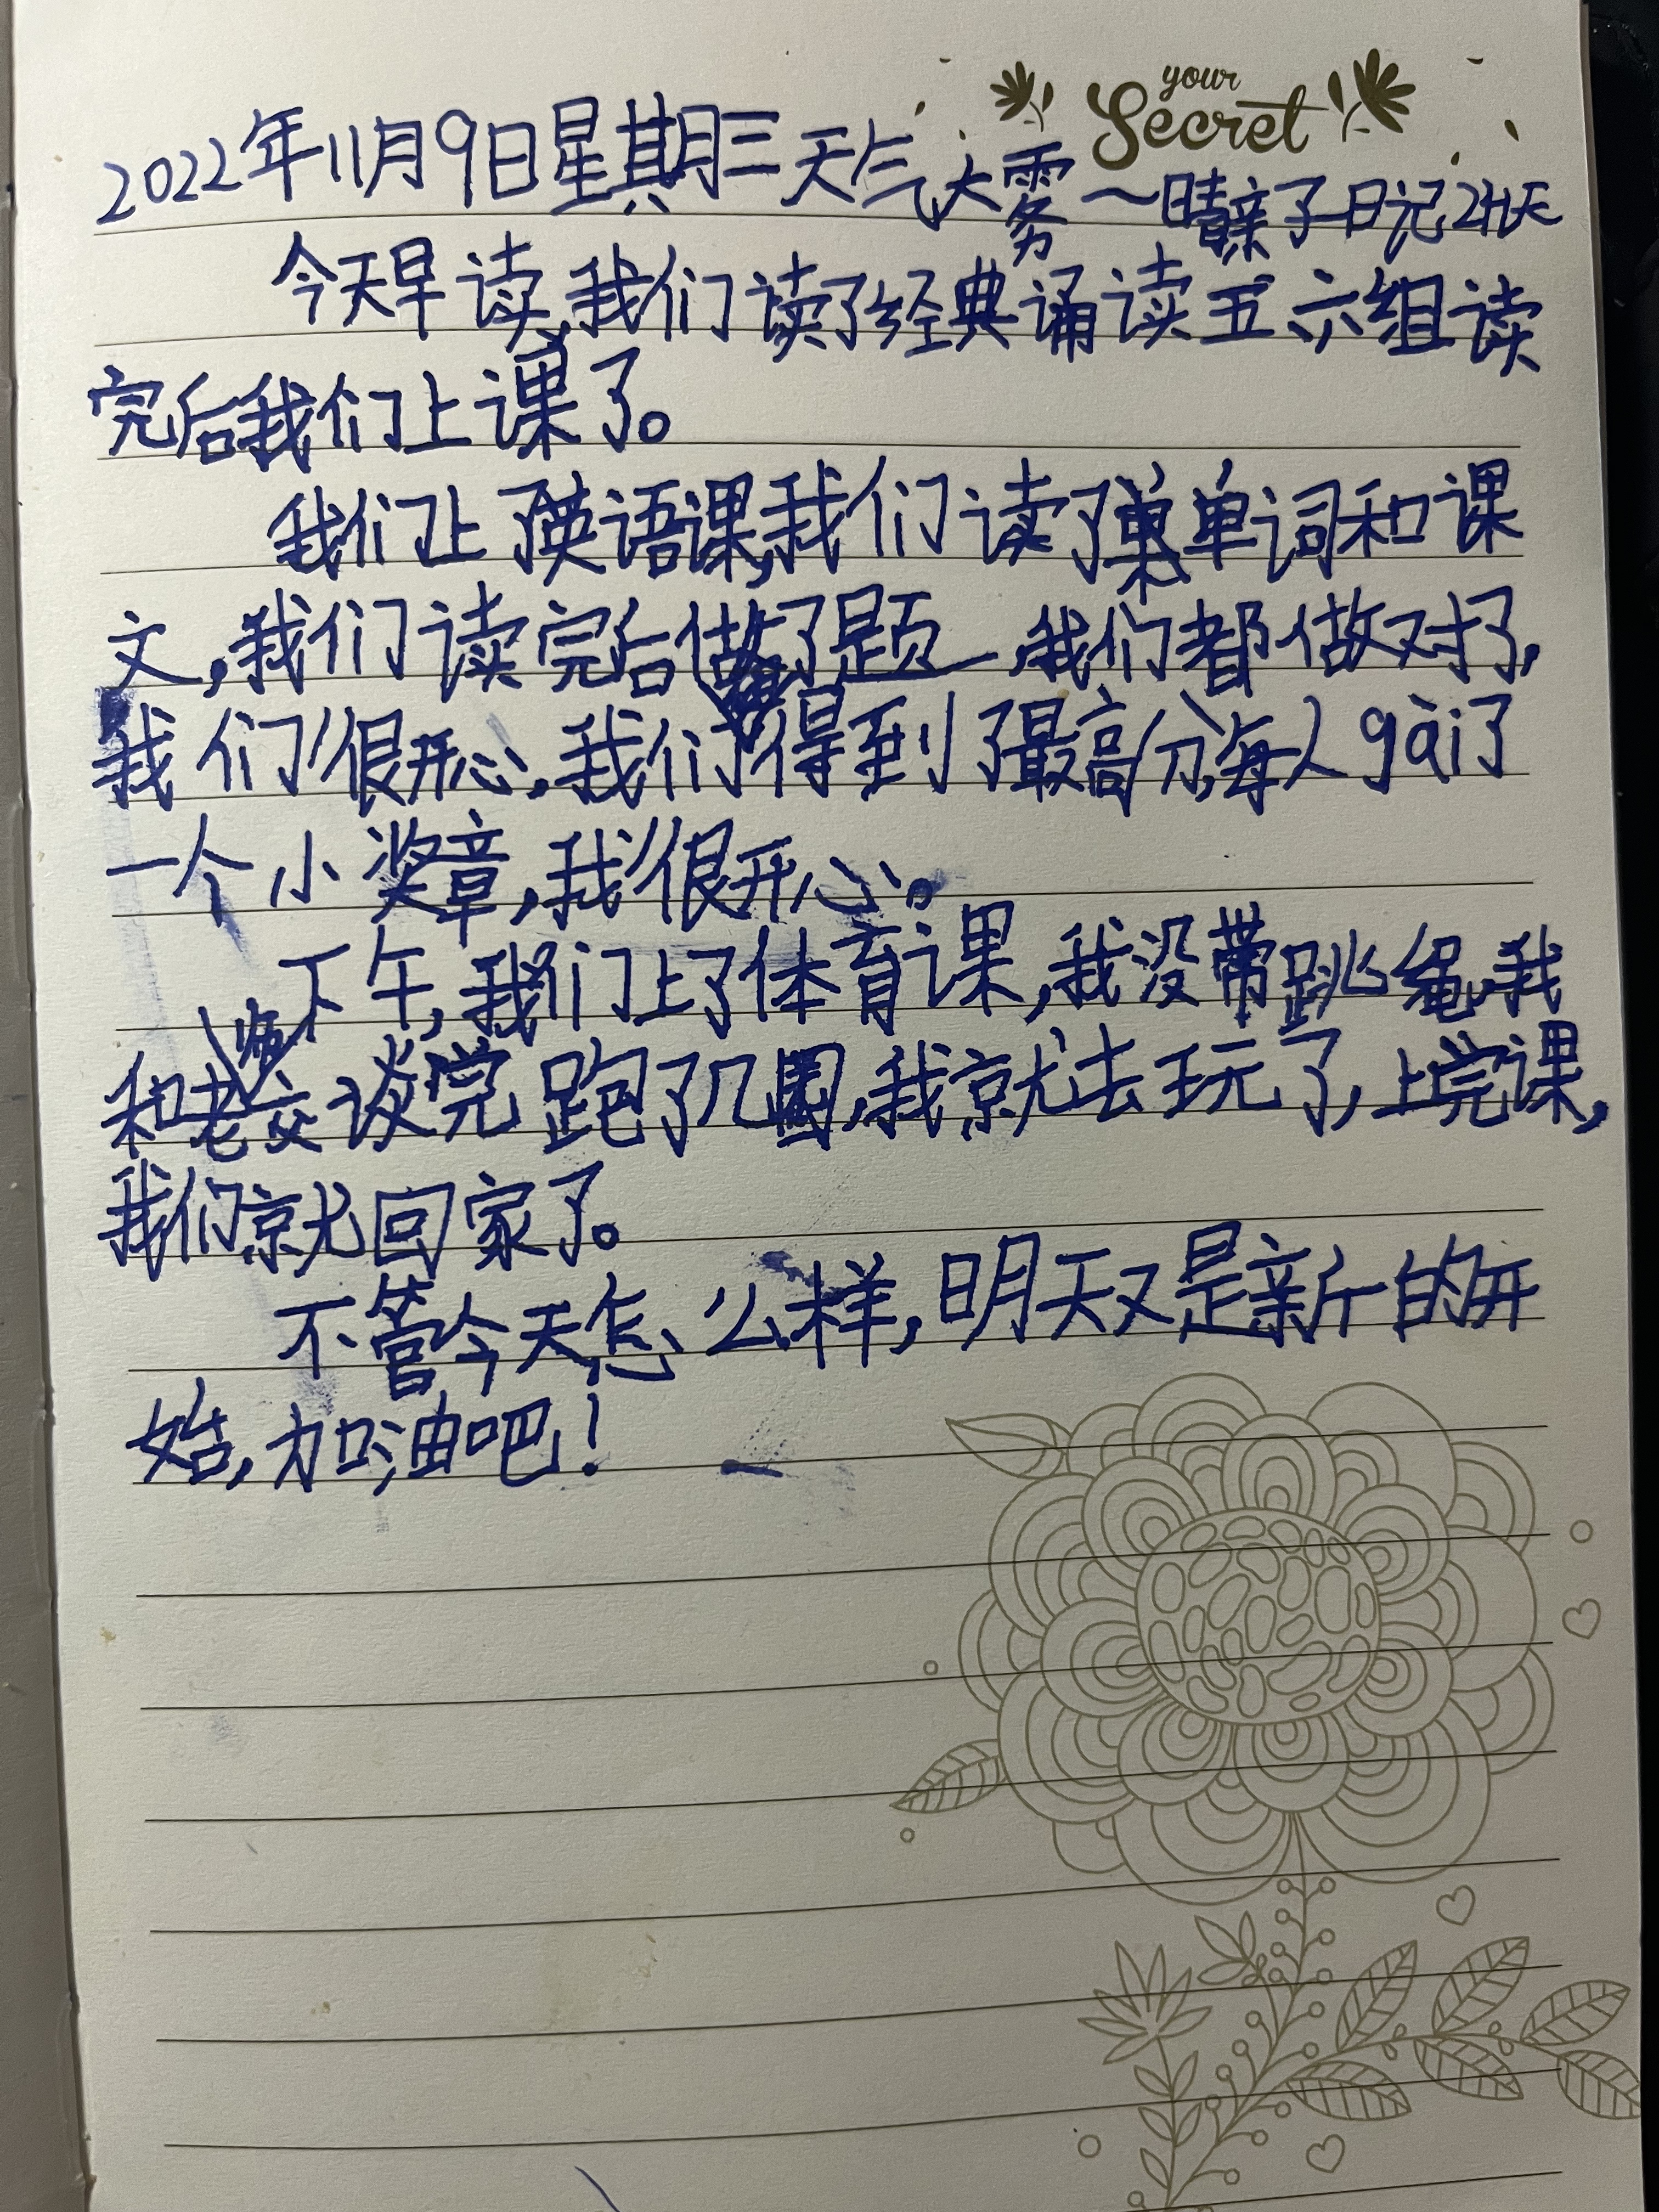 your
Secret
2022年11月9日星期三天气大雾～晴亲子日记
今天早读,我们读了经典诵读五六组读
完后我们上课了。
我们上了英语课,我们读了单词和课
文,我们读完后做了题,我们都做对了,
我们很开心,我们得到了最高分,每人gài了
一个小奖章,我很开心。
下午,我们上了体育课,我没带跳绳,我
和老师交谈完跑了几圈,我就去玩了,上完课,
我们就回家了。
不管今天怎么样,明天又是新的开
始,加油吧!